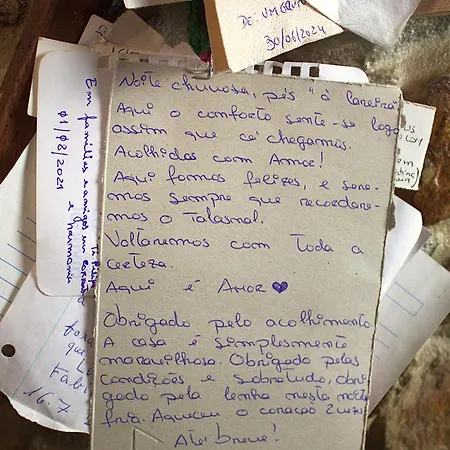 DE: UM GRUPO
30/06/2024
Noite chuvosa, pés "à lareira"
Aqui o conforto sente-se logo
assim que cá chegamos.
Acolhidos com Amor!
Aqui fomos felizes, e sere-
mos sempre que recordare-
mos o Talasnal.
Voltaremos com toda a
certeza.
Aqui é Amor ♥
Obrigado pelo acolhimento.
A casa é simplesmente
maravilhosa. Obrigado pelas
condições e sobretudo, obri-
gado pela lenha nesta noite
fria. Aqueceu o coração
Até breve!
Em famílias e amigos um
e harmonia
01/08/2021
que
16.7